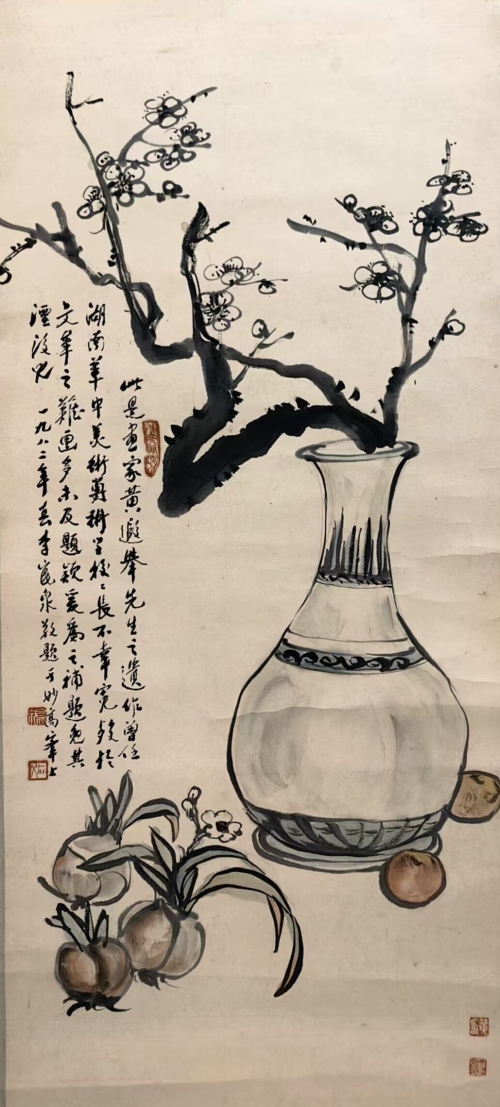 此是画家黄遐举先生之遗作曾任
湖南华中美术艺术学校校长不幸冤杀于
文革之难画多未及题款爰为之补题免其
湮没也 一九八二年春李昆泉敬题于妙高峰上